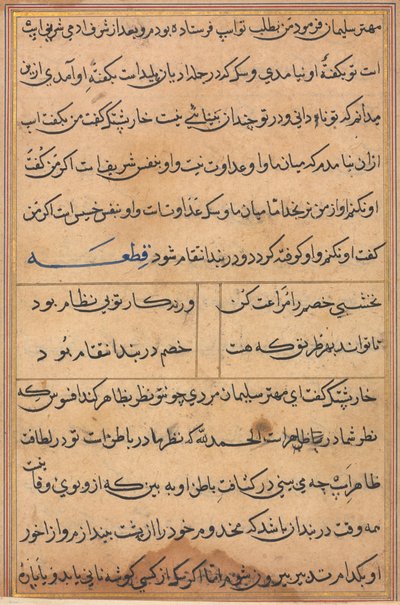 مهتر سلیمان فرمود من بطلب تو اسپ فرستاده بودم و بعد از شرف آدمی شریف اسپ
است تو بگفتهٔ او نیامدی و سگ که در جمله ادیان پلید است بگفتهٔ او آمدی ازین
میدانم که تو نادانی و در تو چندان بینائی نیست خارپشتک گفت من بگفت اسپ
ازان نیامدم که میان ما و او عداوت نیست و او بنفس شریف است اگر من گفت
او نکنم او از من نرنجد اما میان ما و سگ عداوتست و او بنفس خسیس است اگر من
گفت او نکنم و او کوفته گردد و در بند انتقام شود قطعه
نخشبی خصم را مراعت کن
ور نه کار تو بی نظام بود
تا تواند بهر طریق که هست
خصم در بند انتقام بود
خارپشتک گفت ای مهتر سلیمان مردی چو تو نظر بظاهر کند افسوس که
نظر شما در ظاهر است الحمد لله که نظر ما در باطن است تو در لطافت
ظاهر اسپ چه می بینی در کثافت باطن او به بین که ازو بوی وفا نیست
همه وقت در بند آن باشد که مخدوم خود را از پشت بیندازد و از آخور
او بکدام تدبیر بیرون شوم اما اگر سگ از کسی گوشه نانی یابد و یا پاره